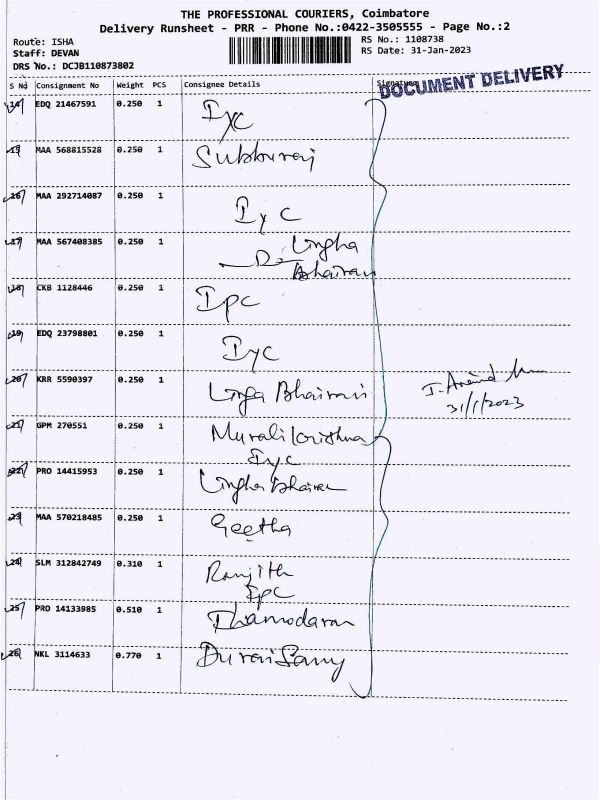 THE PROFESSIONAL COURIERS, Coimbatore
Delivery Runsheet - PRR - Phone No.:0422-3505555 - Page No.:2
Route: ISHA
Staff: DEVAN
DRS No.: DCJB110873802
RS No.: 1108738
RS Date: 31-Jan-2023
S No Consignment No Weight PCS Consignee Details Signature
DOCUMENT DELIVERY
14 EDQ 21467591 0.250 1 Iyc
15 MAA 568815528 0.250 1 Subburaj
16 MAA 292714087 0.250 1 Iyc
17 MAA 567408385 0.250 1 Lingha
Bhairavi
18 CKB 1128446 0.250 1 Ipc
19 EDQ 23798801 0.250 1 Iyc
20 KRR 5590397 0.250 1 Linga Bhairavi
31/1/2023
21 GPM 270551 0.250 1 Muralikrishna
Iyc
22 PRO 14415953 0.250 1 Lingha Bhairavi
23 MAA 570218485 0.250 1 Geetha
24 SLM 312842749 0.310 1 Ranjith
Ipc
25 PRO 14133985 0.510 1 Dhamodaran
26 NKL 3114633 0.770 1 Durai Samy